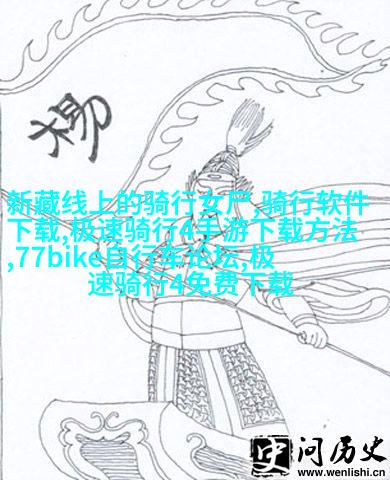 杨
新藏线上的骑行女尸,骑行软件
下载,极速骑行4手游下载方法
,77bike自行车论坛,极
速骑行4免费下载
史 问历史
www.wenlishi.cn